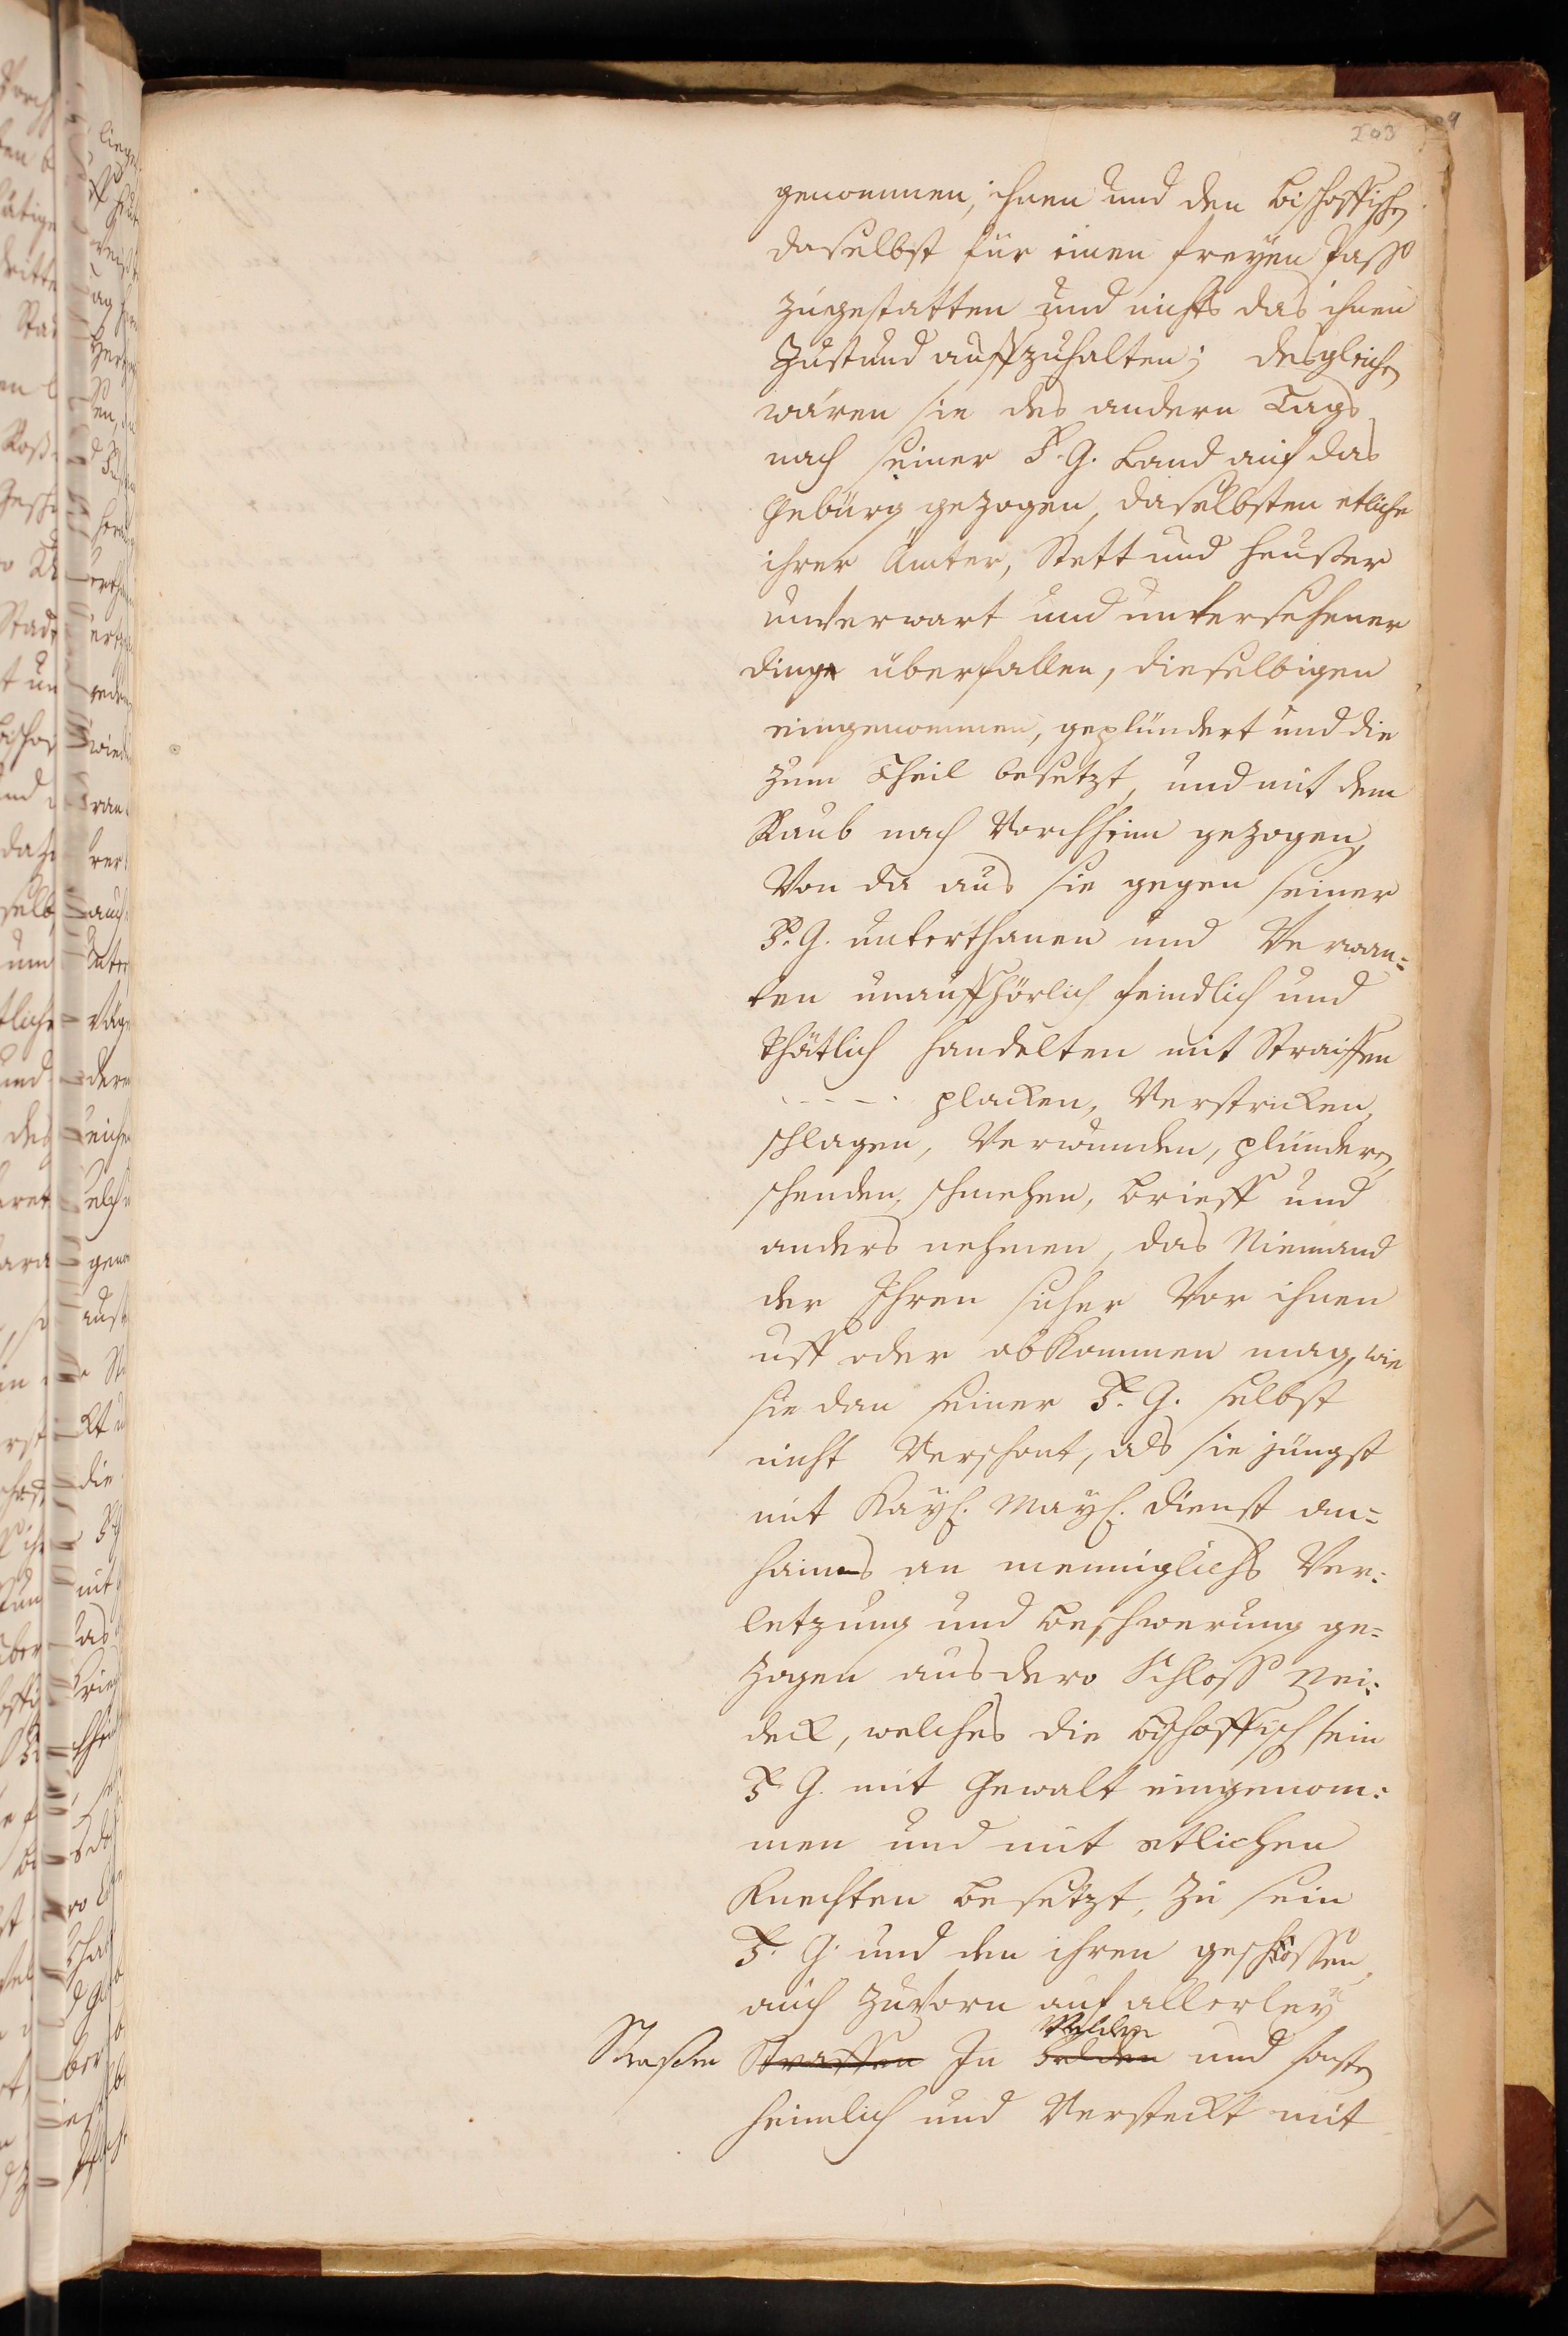 203
genommen, ihnen und den Bischoffischen
daselbst für einen freyen Pass
zugestatten und nichts das ihnen
Zustund auffzuhalten; desgleichen
wären sie des andern Tags
nach seiner F. G. Land auf das
Gebürg gezogen, daselbsten etliche
ihrer Ämter, Stett und Heußer
unverwart und unversehener
dinge überfallen, dieselbigen
eingenommen, geplündert und die
zum Theil besetzt, und mit dem
Raub nach Vorchheim gezogen,
Von da aus sie gegen seiner
F. G. unterthanen und Verwan=
ten unauffhörlich feindlich und
thätlich handelten mit Straiffen
- - - - placken, Verstricken,
schlagen, Verwunden, plündern,
schenden, schmehen, Brieff und
anders nehmen, das Niemand
der Ihren sicher Vor ihnen
uff oder abkommen mag, wie
sie dan seiner F. G. selbst
nicht Verschont, als sie jüngst
mit Kayß. Mayß. dienst an=
haims an menniglichs Ver=
letzung und Beschwerung ge=
zogen aus dero Schloss Nei=
deck, welches die Bischoffisch sein
F. G. mit Gewalt eingenom=
men und mit etlichen
Knechten besetzt, zu sein
F. G. und den ihren geschossen,
auch zuvorn auf allerley
Strassen Strassen In Velden Felden und sonsten
heimlich und Versteckt mit